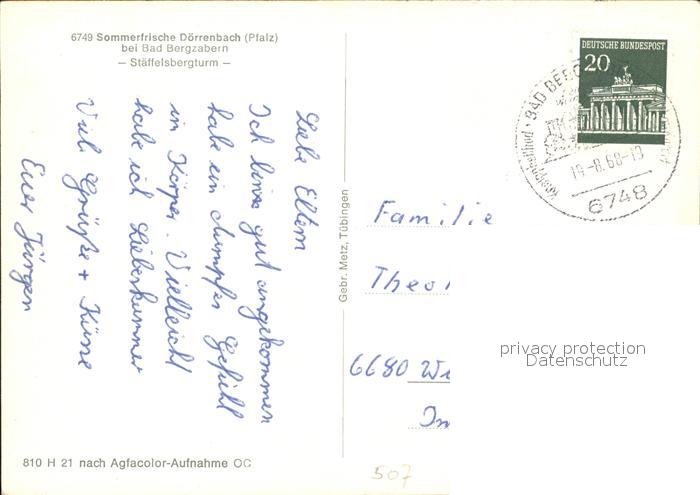 6749 Sommerfrische Dörrenbach (Pfalz)
bei Bad Bergzabern
– Stäffelsbergturm –
Liebe Eltern
Ich binn gut angekommen
habe ein dumpfes Gefühl
im Körper. Vielleicht
habe ich Lieberkummer
Viele Grüße + Küsse
Euer Jürgen
810 H 21 nach Agfacolor-Aufnahme OC
Gebr. Metz, Tübingen
DEUTSCHE BUNDESPOST
20
BAD BERG
Kneippheilbad
19.-8.68-13
6748
Familie
Theo
6680 Wi
Im
507
privacy protection
Datenschutz